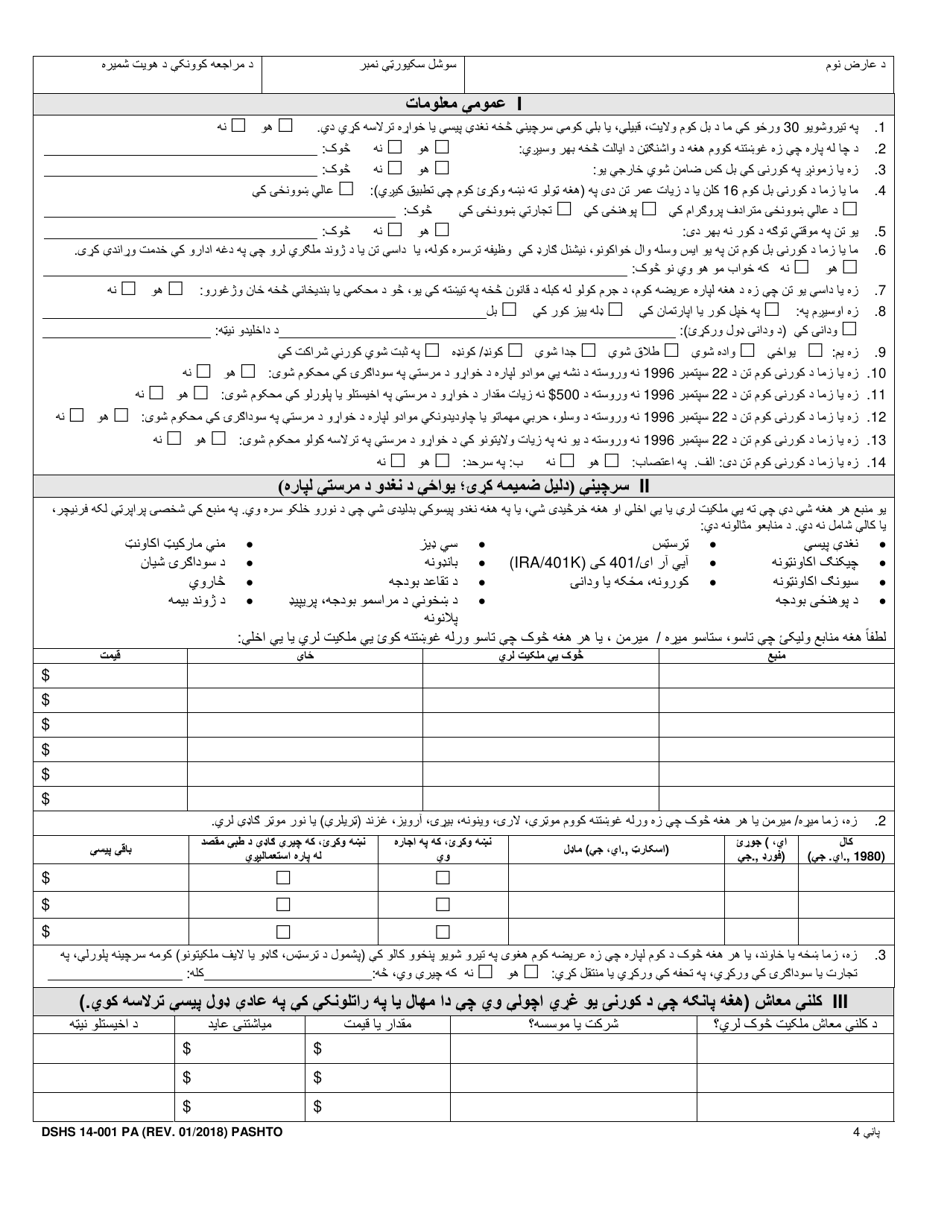 د عارض نوم
سوشل سکیورټي نمبر
د مراجعه کوونکي د هویت شمیره
I عمومي معلومات
1. په تیروشویو 30 ورځو کي ما د بل کوم ولایت، قبیلی، یا بلي کومي سرچیني څخه نغدي پیسي یا خواړه ترلاسه کړي دي. ☐ هو ☐ نه
2. د چا له پاره چي زه غوښتنه کووم هغه د واشنګټن د ایالت څخه بهر وسیږي: ☐ هو ☐ نه څوک:
3. زه یا زمونږ په کورنی کي بل کس ضامن شوی خارجي یو: ☐ هو ☐ نه څوک:
4. ما یا زما د کورنی بل کوم 16 کلن یا د زیات عمر تن دی په (هغه ټولو ته نښه وکړئ کوم چي تطبیق کیږي): ☐ عالي ښوونځی کی
☐ د عالي ښوونځی مترادف پروګرام کی ☐ پوهنځی کی ☐ تجارتي ښوونځی کی څوک:
5. یو تن په موقتي توګه د کور نه بهر دی: ☐ هو ☐ نه څوک:
6. ما یا زما د کورنی بل کوم تن په یو ایس وسله وال ځواکونو، نیشنل ګارډ کي وظیفه ترسره کوله، یا داسي تن یا د ژوند ملګري لرو چي په دغه ادارو کي خدمت وړاندي کړی.
☐ هو ☐ نه که ځواب مو هو وي نو څوک:
7. زه یا داسي یو تن چي زه د هغه لپاره عریضه کوم، د جرم کولو له کبله د قانون څخه په تیښته کي یو، څو د محکمي یا بندیخاني څخه ځان وژغورو: ☐ هو ☐ نه
8. زه اوسیږم په: ☐ په خپل کور یا اپارتمان کي ☐ ډله ییز کور کي ☐ بل
☐ ودانی کي (د ودانی ډول ورکړئ): د داخلیدو نیټه:
9. زه یم: ☐ یواځي ☐ واده شوي ☐ طلاق شوي ☐ جدا شوي ☐ کونډ/ کونډه ☐ په ثبت شوي کورني شراکت کي
10. زه یا زما د کورنی کوم تن د 22 سپټمبر 1996 نه وروسته د نشه یي موادو لپاره د خوارو د مرستي په سوداګری کي محکوم شوی: ☐ هو ☐ نه
11. زه یا زما د کورنی کوم تن د 22 سپټمبر 1996 نه وروسته د $500 نه زیات مقدار د خوارو د مرستي په اخیستلو یا پلورلو کي محکوم شوی: ☐ هو ☐ نه
12. زه یا زما د کورنی کوم تن د 22 سپټمبر 1996 نه وروسته د وسلو، حربي مهماتو یا چاودیدونکي موادو لپاره د خوارو د مرستي په سوداګری کي محکوم شوی: ☐ هو ☐ نه
13. زه یا زما د کورنی کوم تن د 22 سپټمبر 1996 نه وروسته د یو نه په زیات ولایتونو کي د خوارو د مرستي په ترلاسه کولو محکوم شوی: ☐ هو ☐ نه
14. زه یا زما د کورنی کوم تن دی: الف. په اعتصاب: ☐ هو ☐ نه ب: په سرحد: ☐ هو ☐ نه
II سرچیني (دلیل ضمیمه کړی؛ یواځي د نغدو د مرستي لپاره)
یو منبع هر هغه شی دی چي ته یي ملکیت لري یا یي اخلی او هغه خرڅیدی شي، یا په هغه نغدو پیسوکي بدلیدی شي چي د نورو خلکو سره وي. په منبع کي شخصي پراپرټي لکه فرنیچر،
یا کالي شامل نه دي. د منابعو مثالونه دي:
• نغدي پیسي • ټرسټس • سي ډیز • مني مارکیټ اکاونټ
• چیکنګ اکاونټونه • آیي آر ای/401 کی (IRA/401K) • بانډونه • د سوداګری شیان
• سیونګ اکاونټونه • کورونه، مځکه یا ودانی • د تقاعد بودجه • څاروي
• د پوهنځی بودجه • د ښخوني د مراسمو بودجه، پریپیډ • د ژوند بیمه
پلانونه
لطفاً هغه منابع ولیکئ چي تاسو، ستاسو میړه / میرمن ، یا هر هغه څوک چي تاسو ورله غوښتنه کوئ یي ملکیت لري یا یي اخلی:
منبع
څوک یي ملکیت لري
ځای
قیمت
$
$
$
$
$
$
2. زه، زما میړه/ میرمن یا هر هغه څوک چي زه ورله غوښتنه کووم موټري، لاری، وینونه، بیړی، آرویز، غزند (ټریلری) یا نور موټر ګاډي لري.
کال
(1980 ,.ای. جي)
ای، ) جوړئ
(فورډ ,.جي
(اسکارټ ,.ای، جي) ماډل
نښه وکړئ، که په اجاره
وي
نښه وکړئ، که چیري ګاډی د طبي مقصد
له پاره استعمالیږي
باقي پیسی
☐ ☐ $
☐ ☐ $
☐ ☐ $
3. زه، زما ښځه یا خاوند، یا هر هغه څوک د کوم لپاره چي زه عریضه کوم هغوی په تیرو شویو پنځوو کالو کي (پشمول د ټرسټس، ګاډو یا لایف ملکیتونو) کومه سرچینه پلورلي، په
تجارت یا سوداګری کي ورکړي، په تحفه کي ورکړي یا منتقل کړي: ☐ هو ☐ نه که چیري وي، څه: کله:
III کلني معاش (هغه پانګه چي د کورنی یو غړي اچولي وي چي دا مهال یا په راتلونکي کي په عادي ډول پیسي ترلاسه کوي.)
د کلني معاش ملکیت څوک لري؟
شرکت یا موسسه؟
مقدار یا قیمت
میاشتنی عاید
د اخیستلو نیټه
$ $
$ $
$ $
DSHS 14-001 PA (REV. 01/2018) PASHTO
پاڼي 4